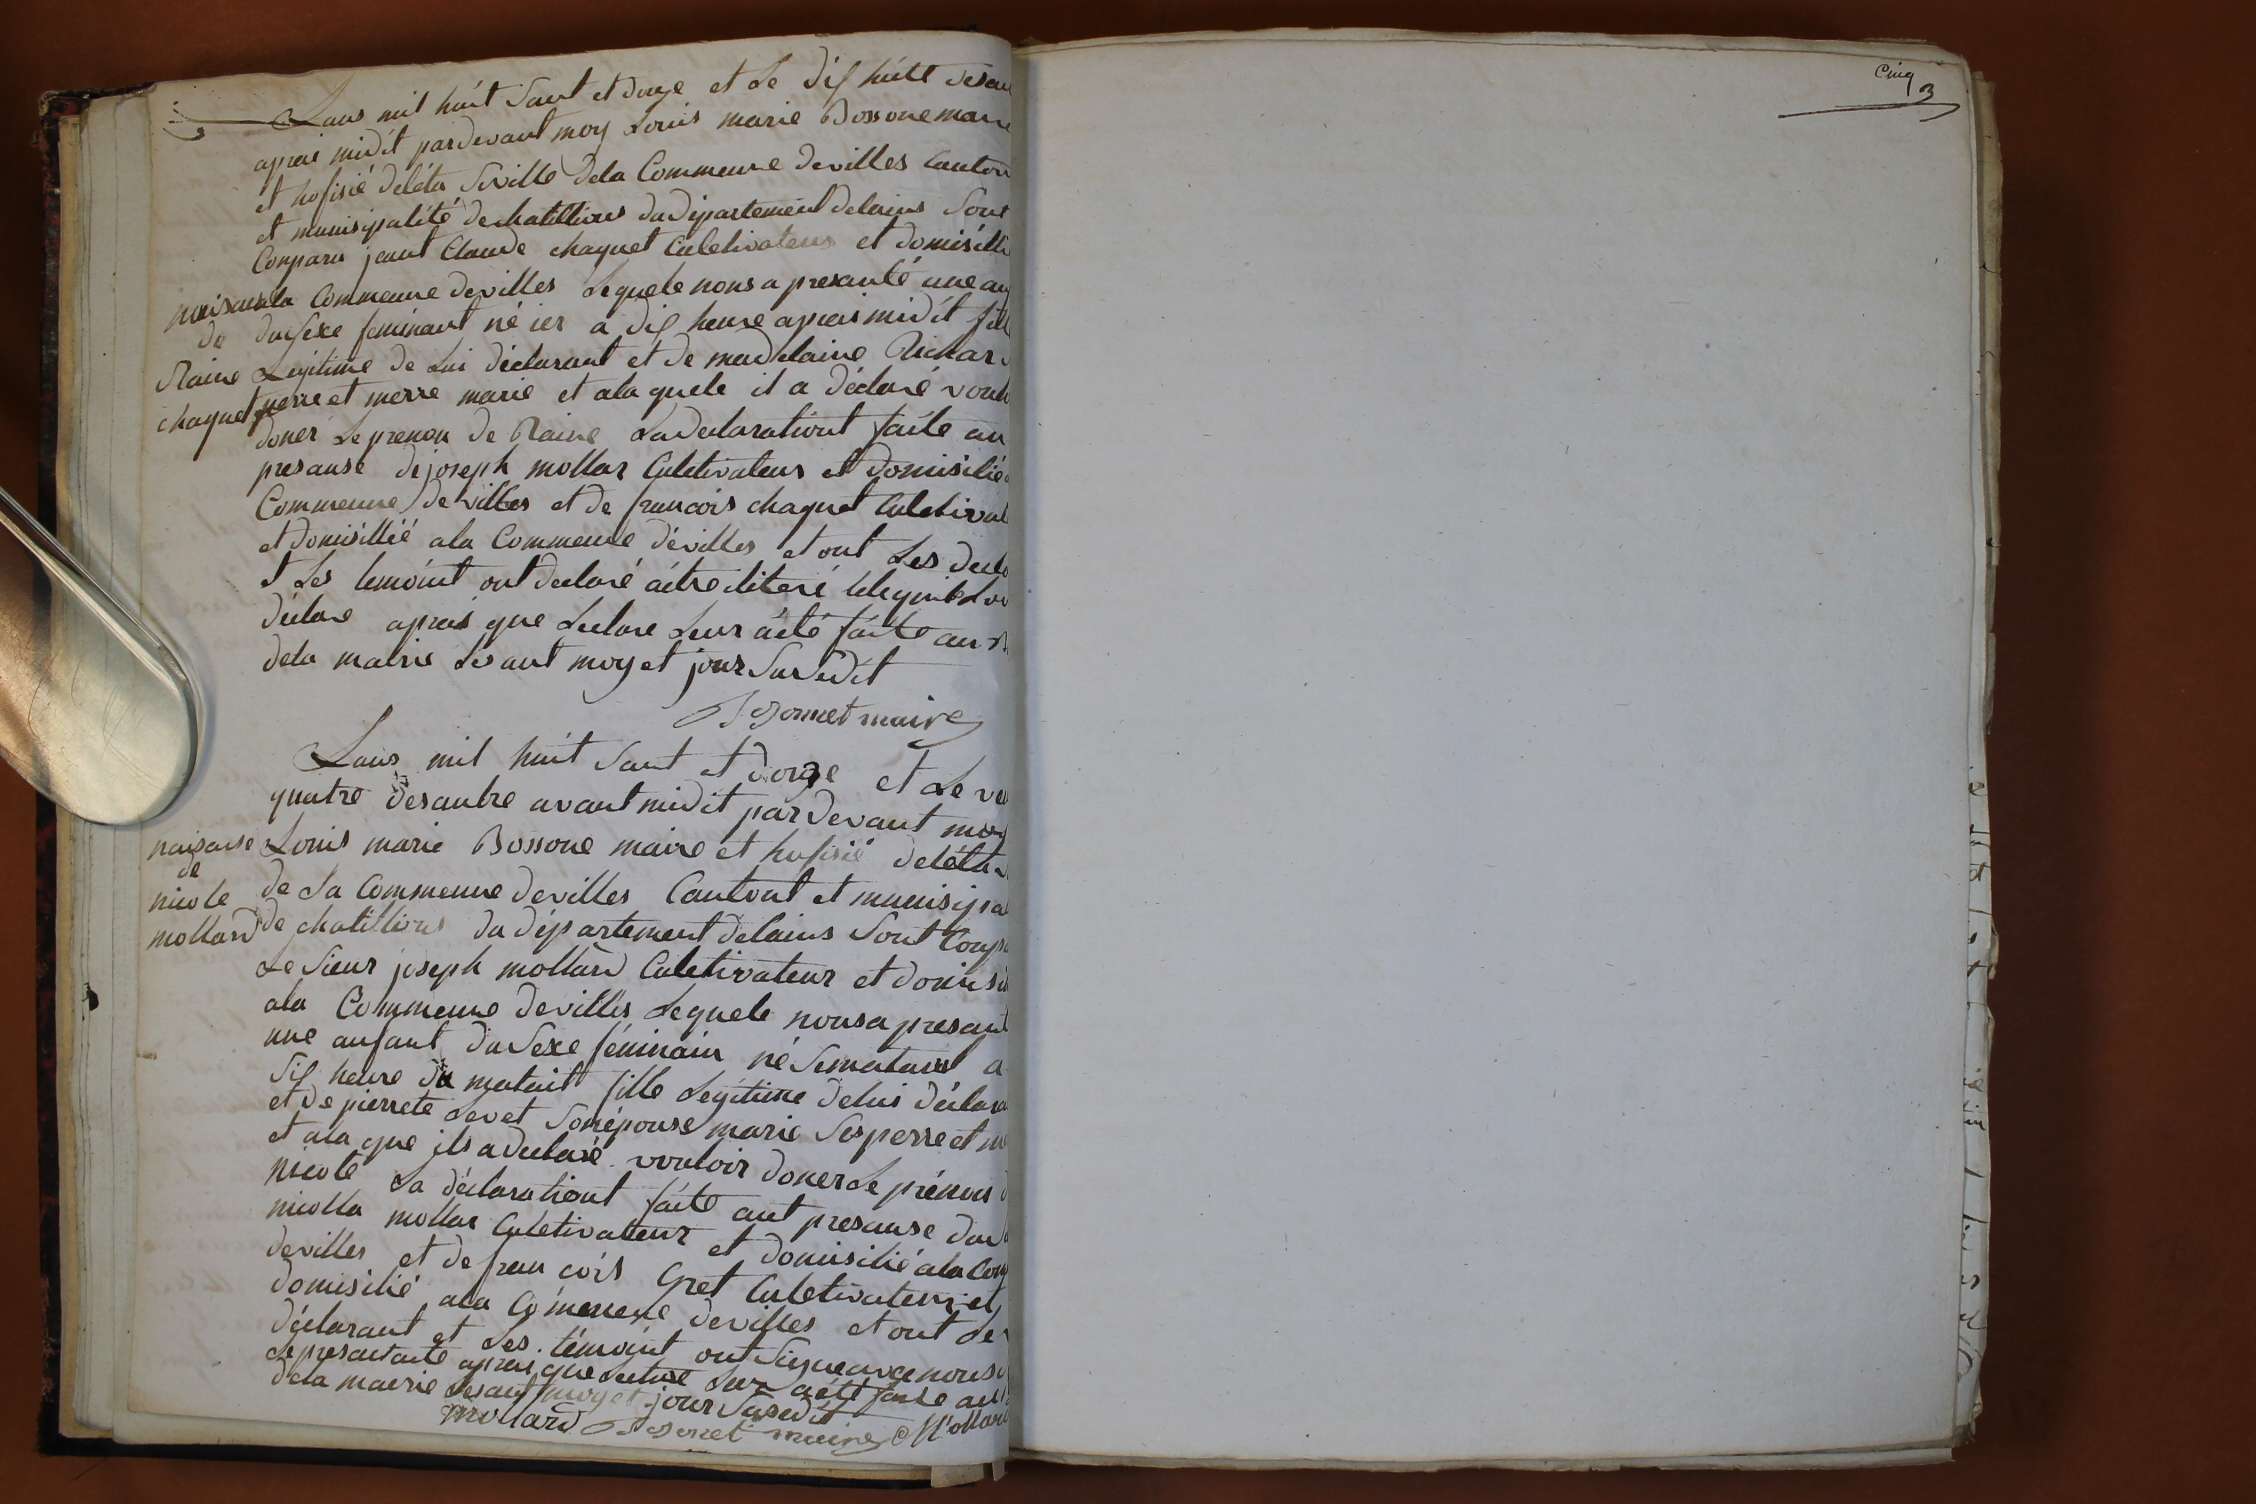 Lans mil huit Sant et douze et Le dix huite desan
aprai midit pardevant moy Louis marie Bossone maire
et hofisié deléta Siville dela Commeune devilles Canton
et munisipalité dechatillions du département delains Sont
Conparu jeant Claude chaquet Culetivateur et domisilli
naisanse
ala Commeune devilles Lequele nous a presanté une an
de
du sexe feminant né ier a dix heure aprai midit fille
Raine
Legitime de Lui déclarant et de madelaine Richard
chaquet
perre et merre marie et ala quele il a déclaré voul
doner Le prenon de Raine La declarationt faite au
presanse de joseph mollar Culetivateur et domisilié
Commeune de villes et de francois chaquet Culetivat
et domisillié ala Commeune dévilles et ont Les decla
et Les temoint ont declaré aitre
déclare aprai que Lecture Leur áété faite au
dela mairie Lésant moy et jour Susdit
Bossonet maire
Lans mil huit Sant et douze et Le ve
quatre desanbre avant midit par devant moy
naisanse
Louis marie Bossone maire et hofisié deléta
de
nicole
de La Commeune devilles Cantont et munisipa
mollard
de chatillions du département delains Sont Conpa
Le Sieur joseph mollard Culetivateur et domisi
ala Commeune devilles Lequele nous a presant
une anfant du Sexe féminain né Sematant a
Six heure du matait fille Legitime delui déclara
et de pierrete Levet Sonépouse marie Ses perre et me
et ala que ils a declaré vouloir doner Le prénon d
nicole La déclarationt faite ant presanse du
nicolla mollar Culetivateur et domisilié ala Com
devilles et de francois Gret Culetivateur et
domisilié ala Commeune devilles et ont Le
déclarant et Les témoint ont Signe avec nous
Le presantaite aprai que Lecture Leur aété faite au
dela mairie Lesant moy et jour Susdit
mollard Bossonet maire Mollard
Cinq
3